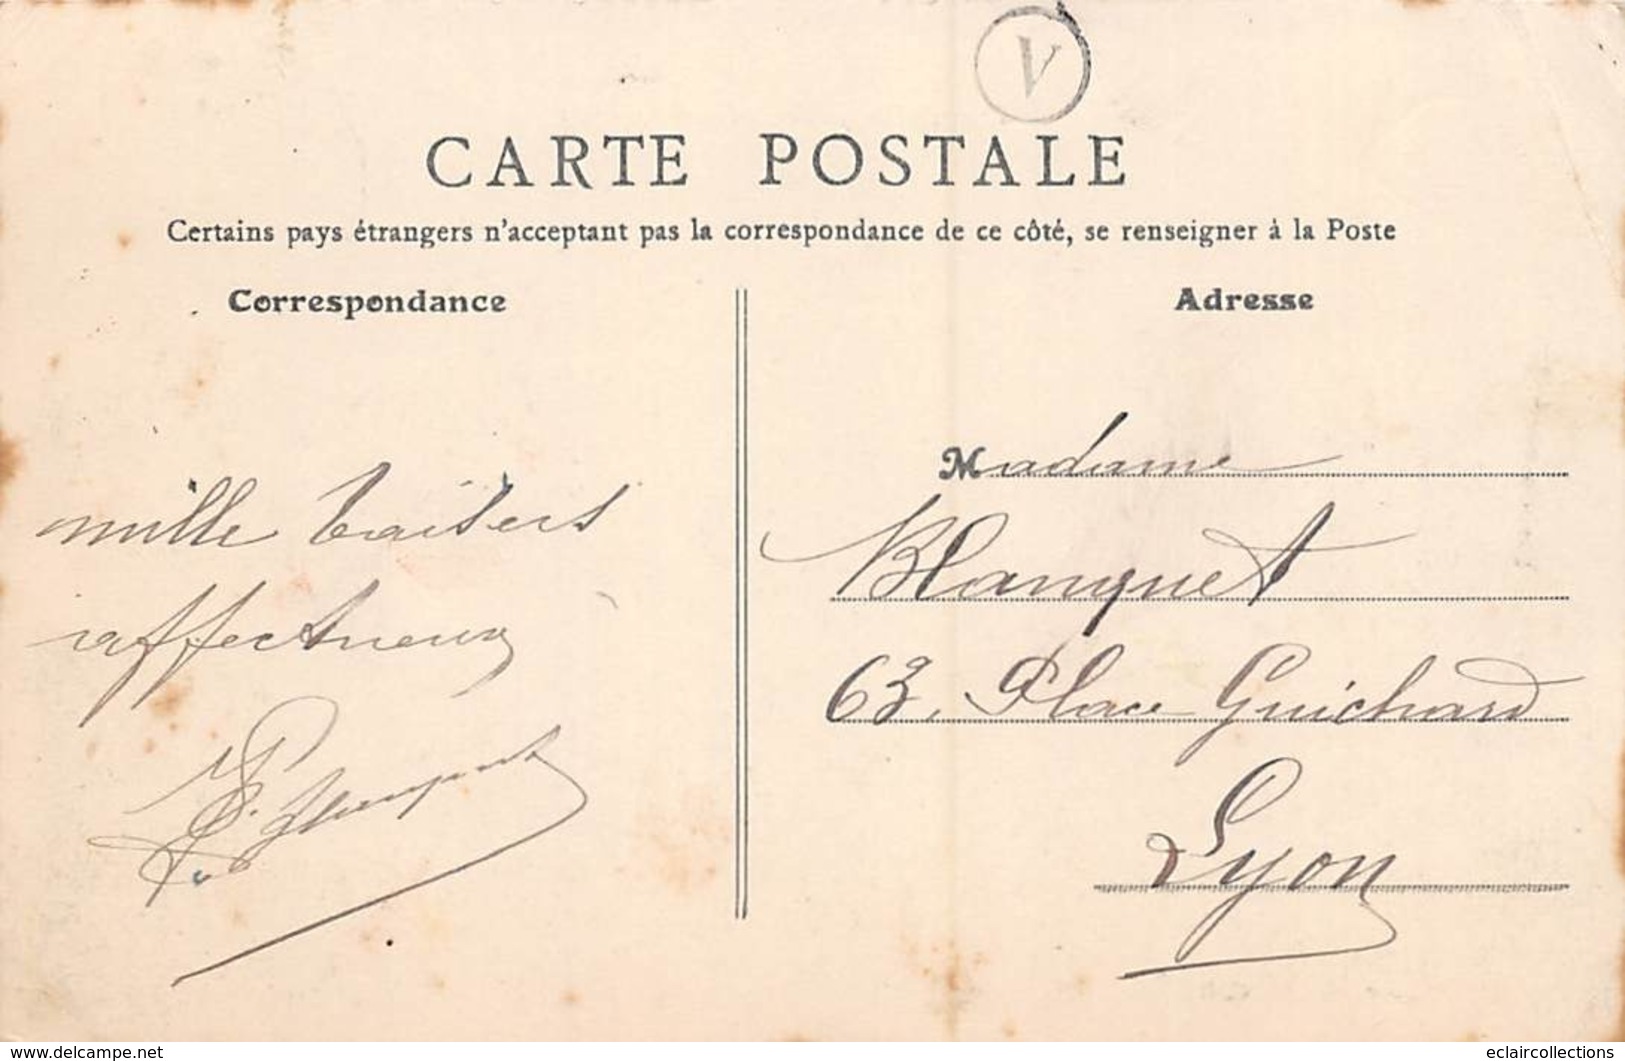 V
CARTE POSTALE
Certains pays étrangers n'acceptant pas la correspondance de ce côté, se renseigner à la Poste
Correspondance
mille baisers
affectueux
Adresse
Madame
Blanquet
63, Place Guichard
Lyon
www.delcampe.net
eclaircollections